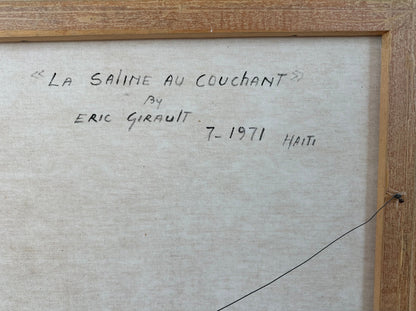 « LA SALINE AU COUCHANT »
By
ERIC GIRAULT.
7-1971 HAITI